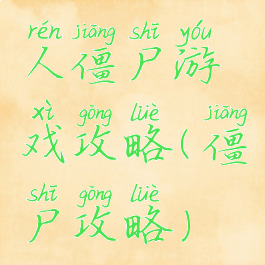 rén jiāng shī yóu
人僵尸游
xì gōng lüè jiāng
戏攻略(僵
shī gōng lüè
尸攻略)